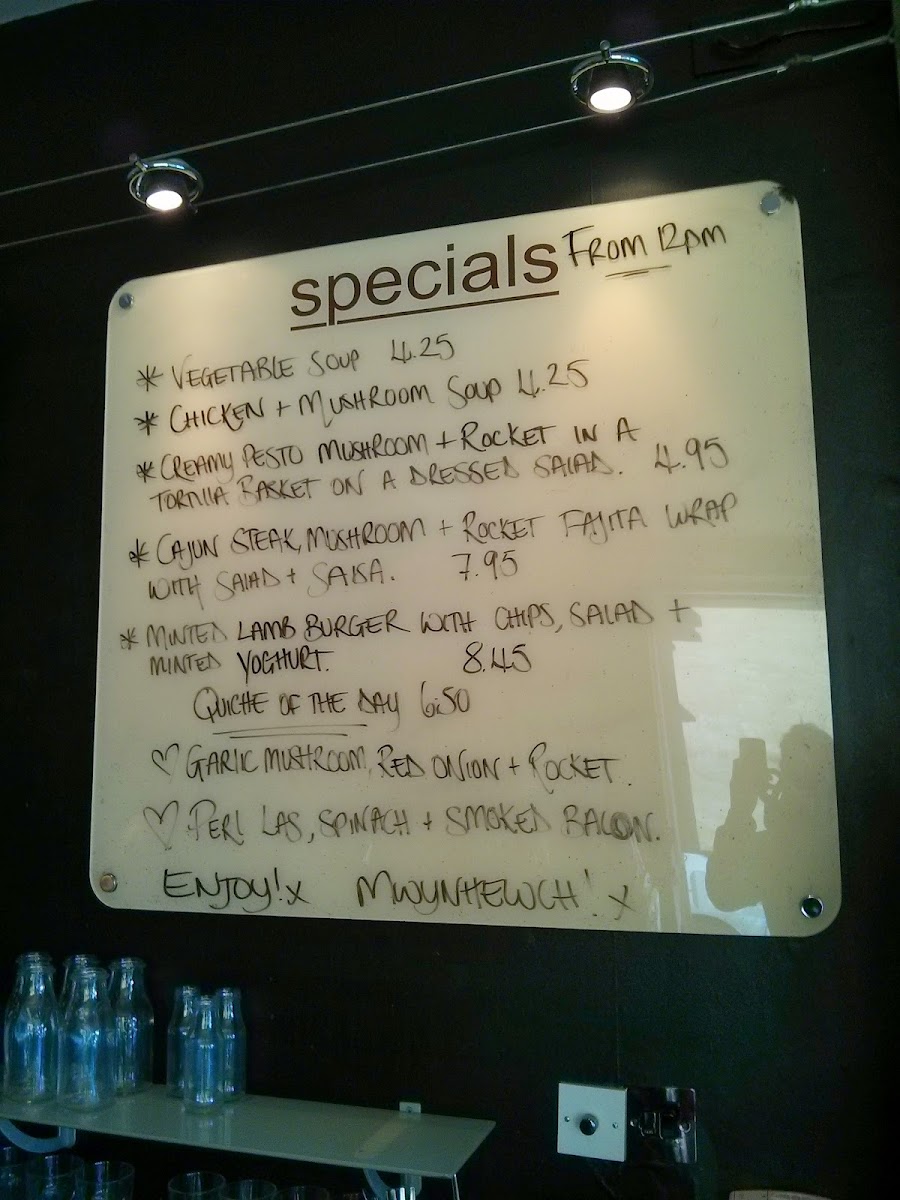 specials FROM 12PM
* VEGETABLE SOUP 4.25
* CHICKEN + MUSHROOM SOUP 4.25
* CREAMY PESTO MUSHROOM + ROCKET IN A
TORTILLA BASKET ON A DRESSED SALAD. 4.95
* CAJUN STEAK, MUSHROOM + ROCKET FAJITA WRAP
WITH SALAD + SALSA. 7.95
* MINTED LAMB BURGER WITH CHIPS, SALAD +
MINTED YOGHURT. 8.45
QUICHE OF THE DAY 6.50
♡ GARLIC MUSHROOM, RED ONION + ROCKET.
♡ PERL LAS, SPINACH + SMOKED BACON.
ENJOY! x MWYNHEWCH! x